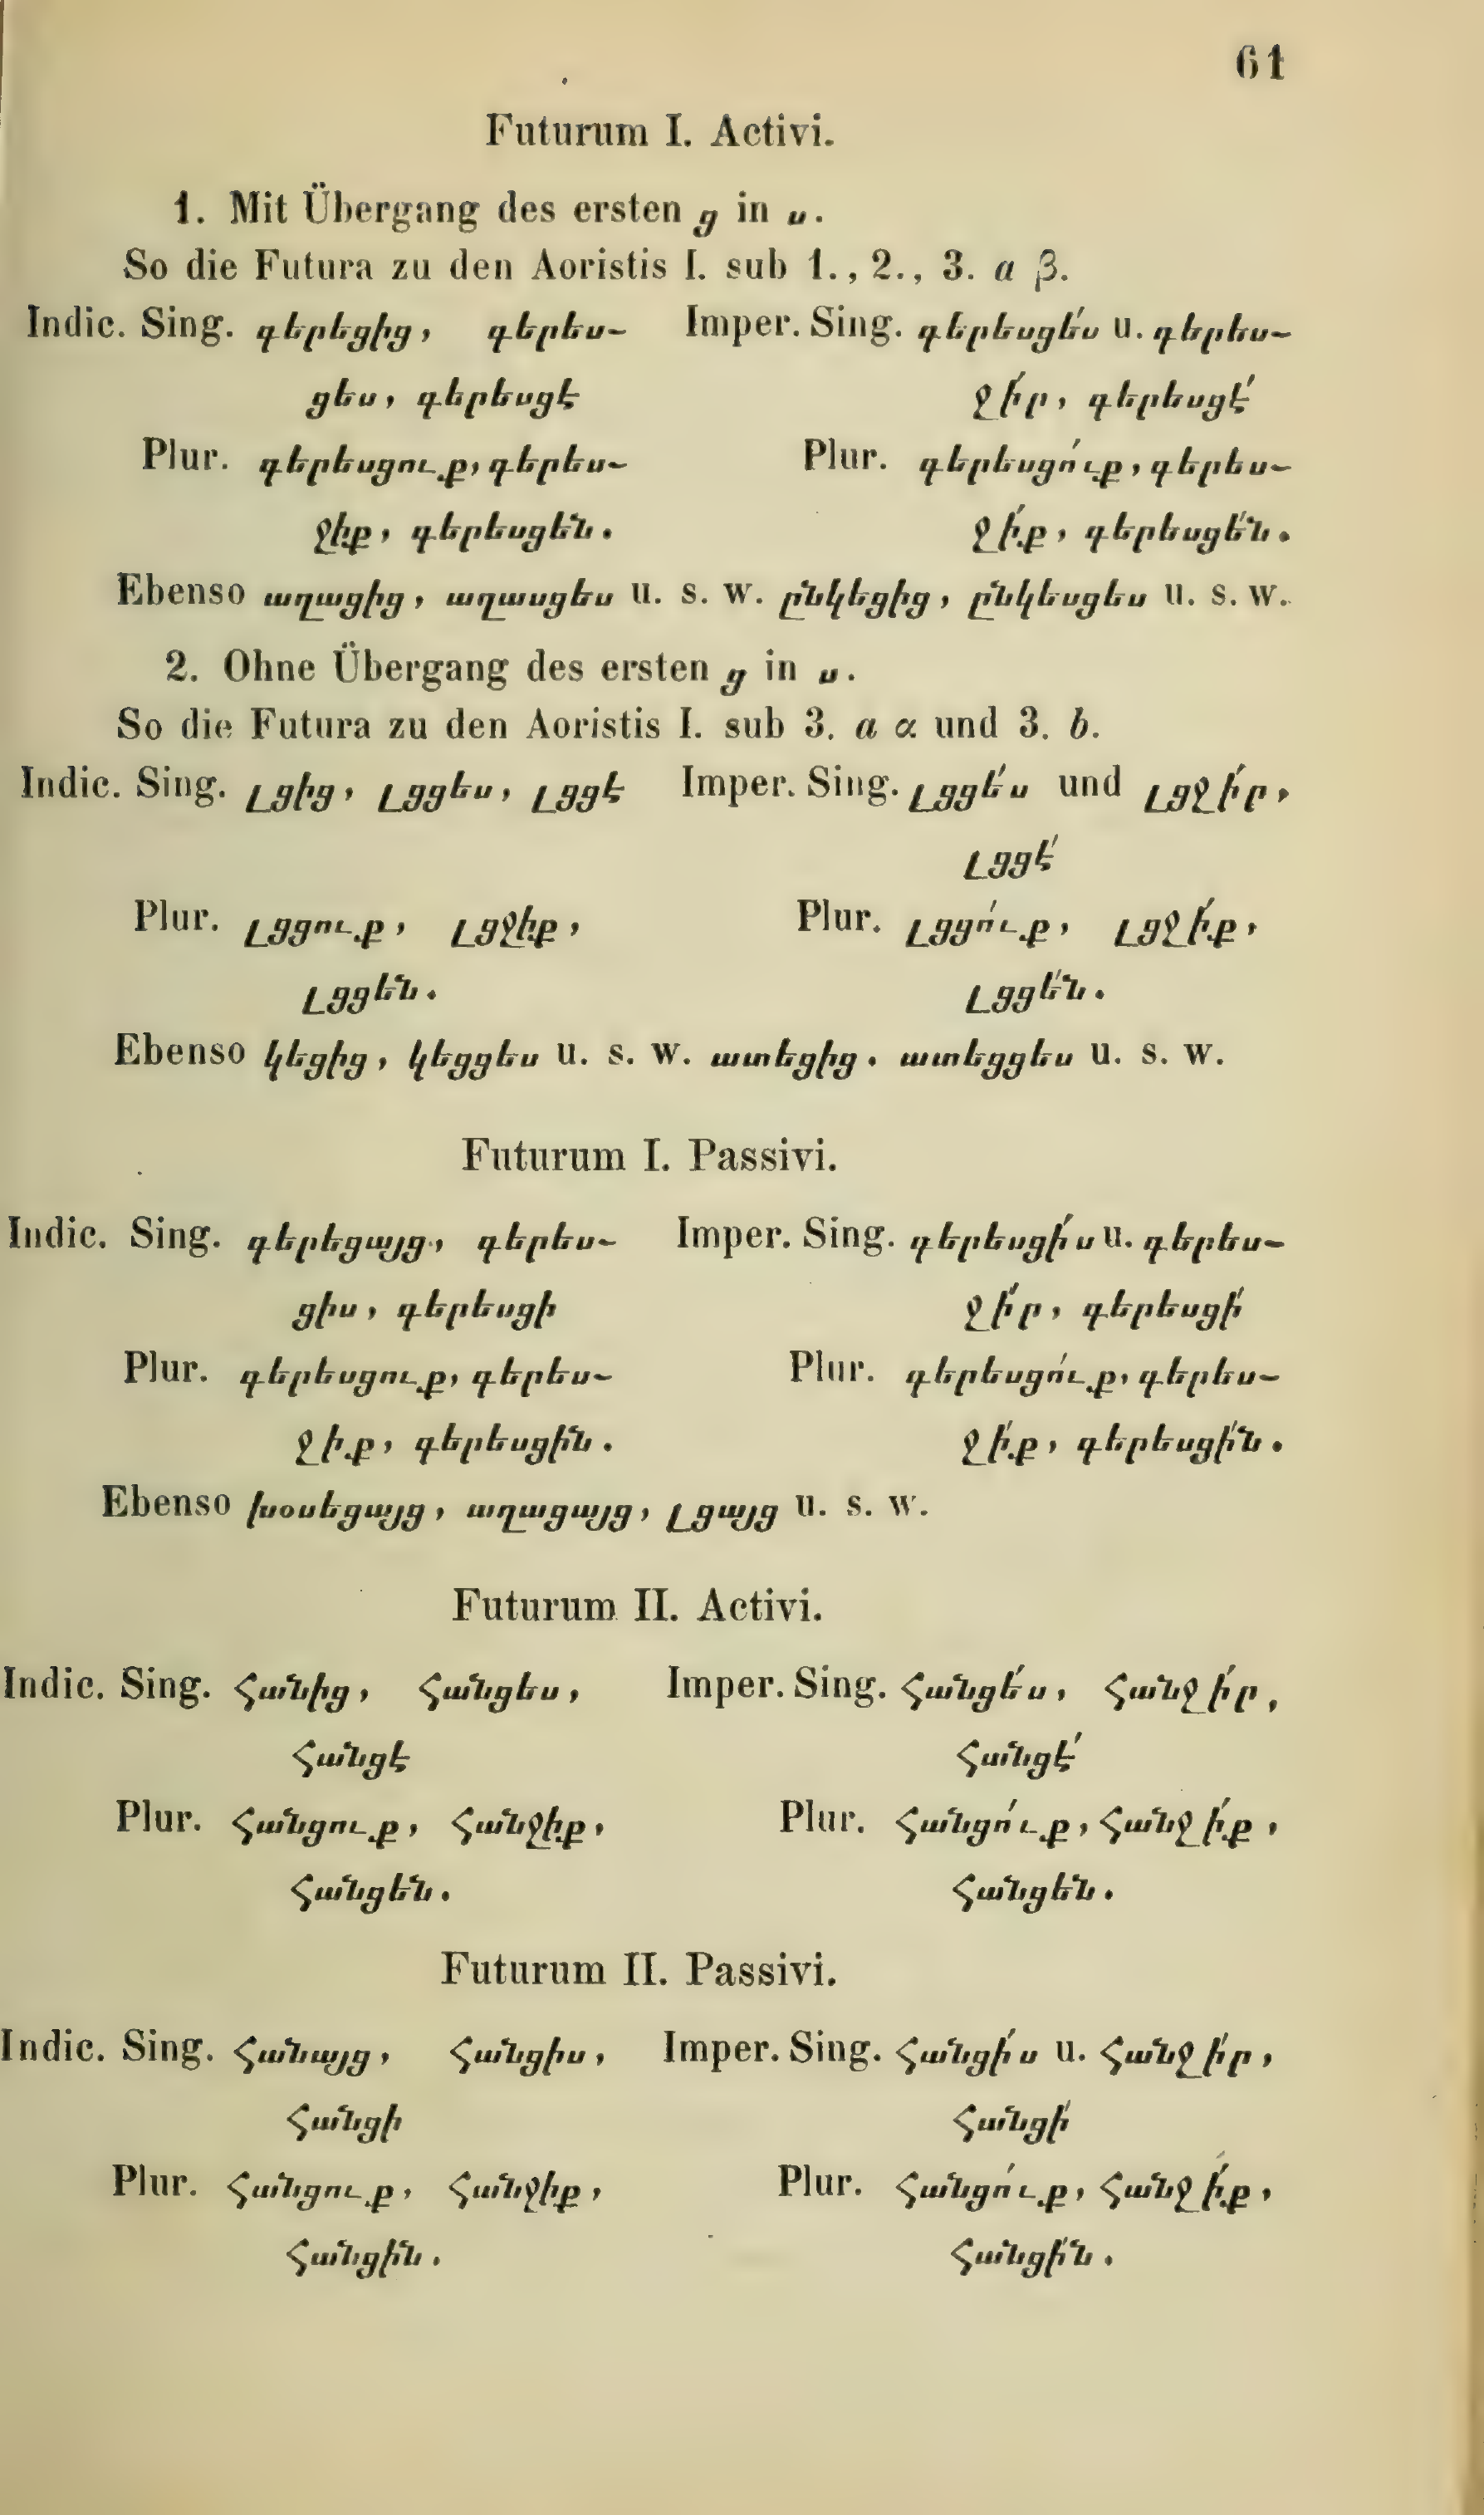 61
Futurum I. Activi.
1. Mit Übergang des ersten ց in ս.
So die Futura zu den Aoristis I. sub 1., 2., 3. a β.
Indic. Sing. գերեցից, գերես- Imper. Sing. գերեսցե՛ս u. գերես-
ցես, գերեսցէ ջի՛ր, գերեսցէ՛
Plur. գերեսցուք, գերես- Plur. գերեսցո՛ւք, գերես-
ջիք, գերեսցեն. ջի՛ք, գերեսցե՛ն.
Ebenso աղացից, աղասցես u. s. w. ընկեցից, ընկեսցես u. s. w.
2. Ohne Übergang des ersten ց in ս.
So die Futura zu den Aoristis I. sub 3. a α und 3. b.
Indic. Sing. Լցից, Լցցես, Լցցէ Imper. Sing. Լցցե՛ս und Լցջի՛ր,
Լցցէ՛
Plur. Լցցուք, Լցջիք, Plur. Լցցո՛ւք, Լցջի՛ք,
Լցցեն. Լցցե՛ն.
Ebenso կեցից, կեցցես u. s. w. ատեցից. ատեցցես u. s. w.
Futurum I. Passivi.
Indic. Sing. գերեցայց, գերես- Imper. Sing. գերեսցի՛ս u. գերես-
ցիս, գերեսցի ջի՛ր, գերեսցի՛
Plur. գերեսցուք, գերես- Plur. գերեսցո՛ւք, գերես-
ջիք, գերեսցին. ջի՛ք, գերեսցի՛ն.
Ebenso խօսեցայց, աղացայց, Լցայց u. s. w.
Futurum II. Activi.
Indic. Sing. Հանից, Հանցես, Imper. Sing. Հանցե՛ս, Հանջի՛ր,
Հանցէ Հանցէ՛
Plur. Հանցուք, Հանջիք, Plur. Հանցո՛ւք, Հանջի՛ք,
Հանցեն. Հանցեն.
Futurum II. Passivi.
Indic. Sing. Հանայց, Հանցիս, Imper. Sing. Հանցի՛ս u. Հանջի՛ր,
Հանցի Հանցի՛
Plur. Հանցուք, Հանջիք, Plur. Հանցո՛ւք, Հանջի՛ք,
Հանցին. Հանցի՛ն.